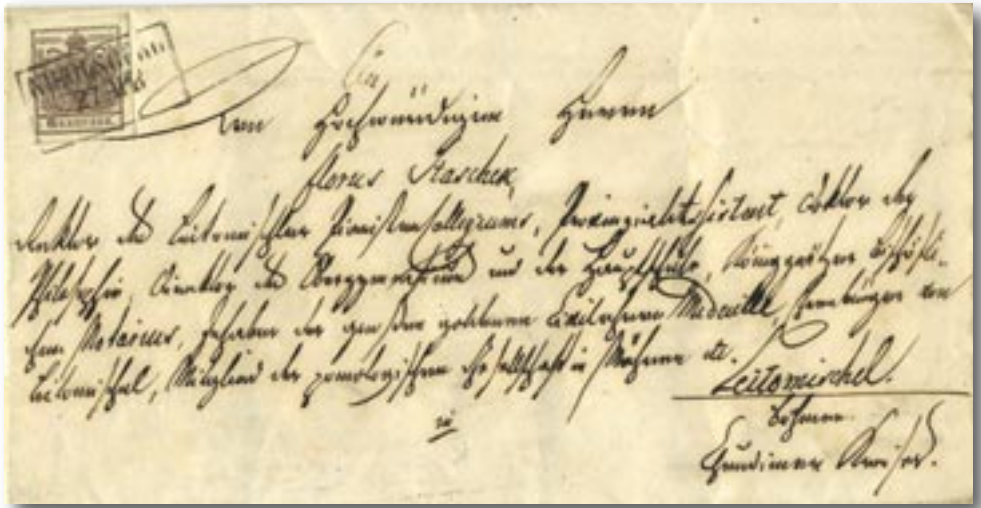 Ein
Hochwürdigen Herrn
Florus Staschek,
Rektor des Leitomischler Piaristen Collegiums, Provinzialassistent, Doktor der
Philosophie, Direktor des Obergymnasiums und der Hauptschule, Königgrätzer bischöfli-
chen Notarius, Inhaber der großen goldenen Civilehren Medaille, Ehrenbürger von
Leitomischel, Mitglied der pomologischen Gesellschaft in Mähren etc.
zu
Leitomischel.
Böhmen
Chrudimer Kreises.